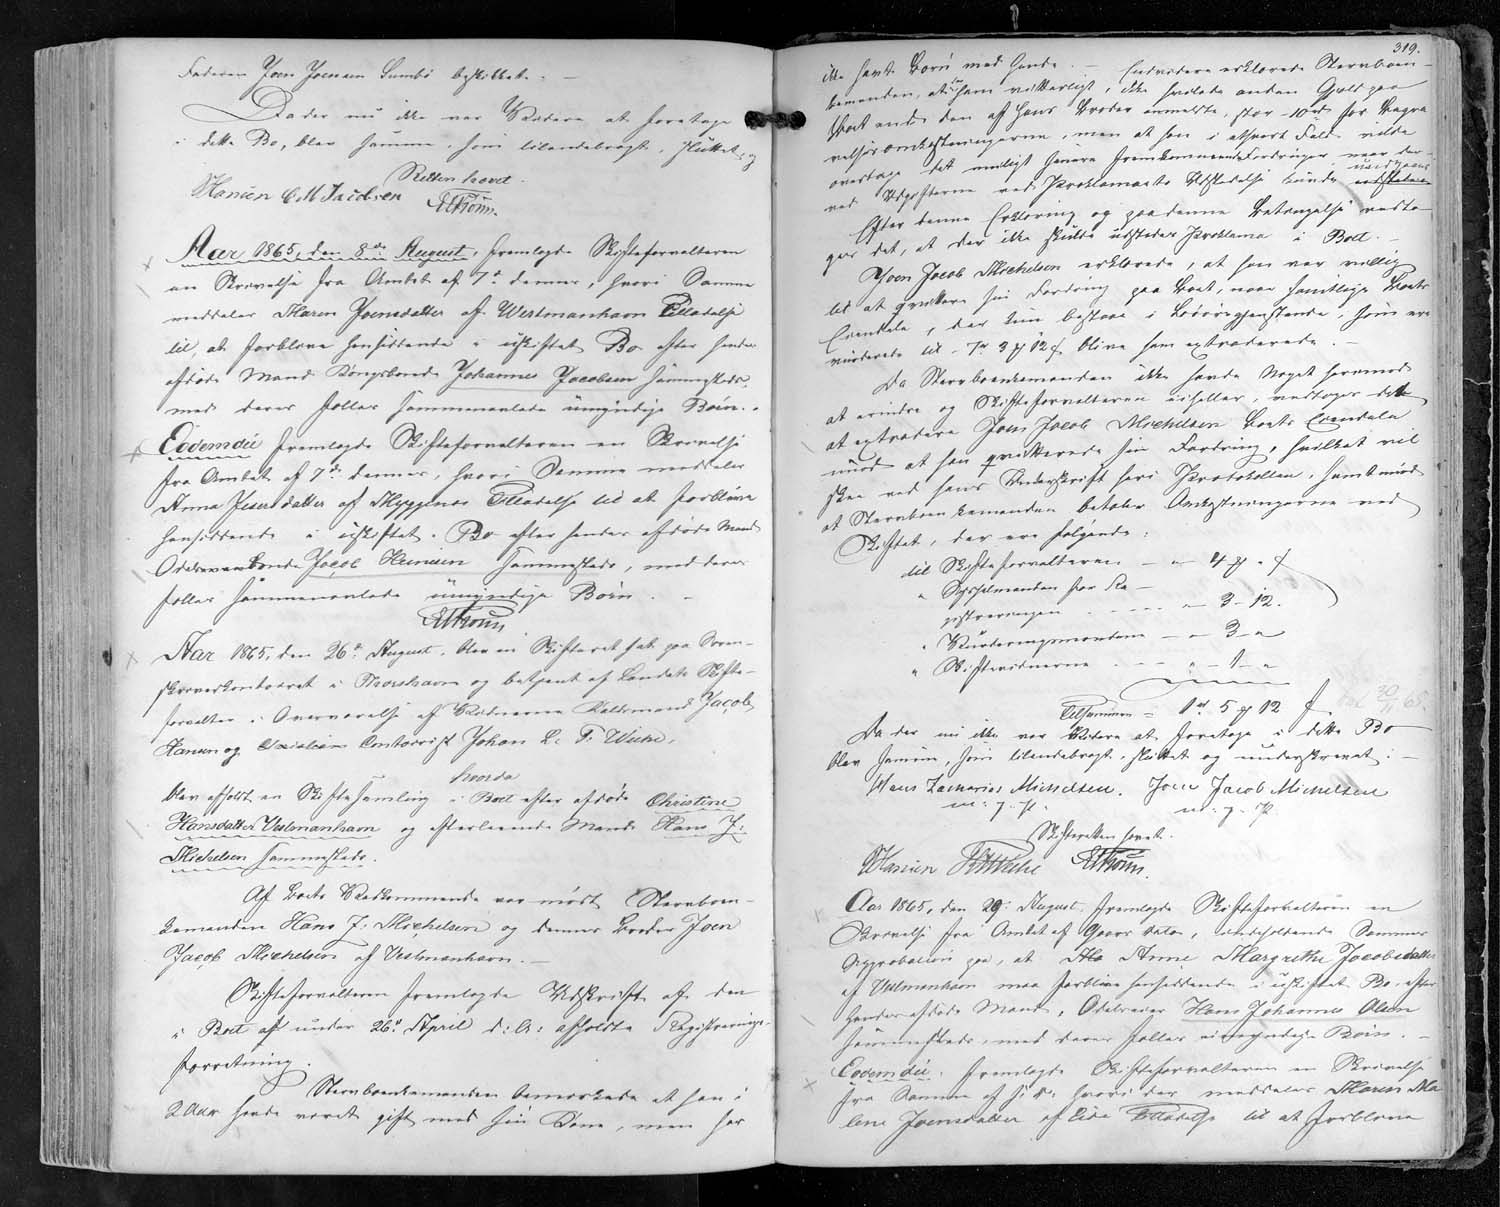 Faderen Joen Joensen Sumbø beskikket. —
Da der nu ikke var Videre at foretage
i dette Bo, blev Samme, som tilendebragt, sluttet, og
Retten hævet.
Hansen C M Jacobsen
Aar 1865, den 8de August, fremlagde Skifteforvalteren
en Skrivelse fra Amtet af 7de dennes, hvori Samme
meddeler Maren Joensdatter af Westmanhavn Tilladelse
til, at forblive hensiddende i uskiftet Bo efter hendes
afdøde Mand Kongsbonde Johannes Jacobsen sammesteds,
med deres fælles sammenavlede umyndige Børn. -
Eodem die fremlagde Skifteforvalteren en Skrivelse
fra Amtet af 7de dennes, hvori Samme meddeler
Anna Joensdatter af Myggenæs Tilladelse til at forblive
hensiddende i uskiftet Bo efter hendes afdøde Mand
Odelsbonde Jacob Heinesen sammesteds, med deres
fælles sammenavlede umyndige Børn. -
Aar 1865, den 26de August, blev en Skifteret sat paa Soren-
skriverkontoiret i Thorshavn og betjent af Landets Skifte-
forvalter i Overværelse af Vidnerne Raadsmand Jacob
Hansen og Contoirist Johan L. T. Weihe,
hvorda
blev afholdt en Skiftesamling i Boet efter afdøde Christine
Hansdatter Vestmanhavn og efterlevende Mand Hans Z:
Michelsen sammesteds.
Af Boets Vedkommende var mødt Stervboen-
kemanden Hans Z: Michelsen og dennes Broder Joen
Jacob Michelsen af Vestmanhavn. —
Skifteforvalteren fremlagde Udskrift af den
i Boet af under 26de April d: A: afholdte Registrerings-
forretning.
Stervboenkemanden bemærkede at han i
2 Aar havde været gift med sin Kone, men har
319.
ikke havt Børn med hende. — Endvidere erklærede Stervboen-
kemanden, at ham vitterligt, ikke hvilede anden Gjæld paa
Boet end den af hans Broder anmeldte, stor 10 rd for Begra-
velsesomkostningerne, men at han i ethvert Fald vilde
overtage det muligt senere fremkommende Fordringer, naar der-
ved Udgifterne ved Proklamaets Udstedelse kunde undgaaes
Efter denne Erklæring og paa denne Betingelse vedto-
ges det, at der ikke skulde udstedes Proklama i Boet. —
Joen Jacob Michelsen erklærede, at han var villig
til at qvittere sin Fordring paa Boet, naar samtlige Boets
Eiendele, der kun bestaae i Løsøregjenstande, som ere
vurderede til 7 rd 3 # 12 s blive ham extraderede. —
Da Stervboenkemanden ikke havde Noget herimod
at erindre og Skifteforvalteren ei heller, vedtoges det
at extradere Joen Jacob Michelsen Boets Eiendele
imod at han qvitterede sin Fordring, hvilket vil
skee ved hans Underskrift her i Protokollen, samt imod
at Stervboenkemanden betaler Omkostningerne ved
Skiftet, der ere følgende:
til Skifteforvalteren — „ 4 # „ s
„ Sysselmanden for Re-
gistreringen - - - - - „ - 3 - 12.
„ Vurderingsmændene - „ - 3 - „
„ Skiftevidnerne - - - „ - 1 - „
Tilsammen = 1 rd 5 # 12 s
Da der nu ikke var Videre at foretage i dette Bo
blev Samme, som tilendebragt, sluttet og underskrevet: —
Hans Zacharias Michelsen. Joen Jacob Michelsen
m: f: P: m: f: P:
Skifteretten hævet.
Hansen Weihe
Aar 1865, den 29: August, fremlagde Skifteforvalteren en
Skrivelse fra Amtet af Gaars Dato, indeholdende Sammes
Approbation paa, at Anne Margrethe Jacobsdatter
af Vestmanhavn maa forblive hensiddende i uskiftet Bo efter
hendes afdøde Mand, Odelseier Hans Johannes Olsen
sammesteds, med deres fælles umyndige Børn. —
Eodem die fremlagde Skifteforvalteren en Skrivelse
fra Samme af s: D: hvori der meddeles Maren Ma-
lene Joensdatter af Eide Tilladelse til at forblive